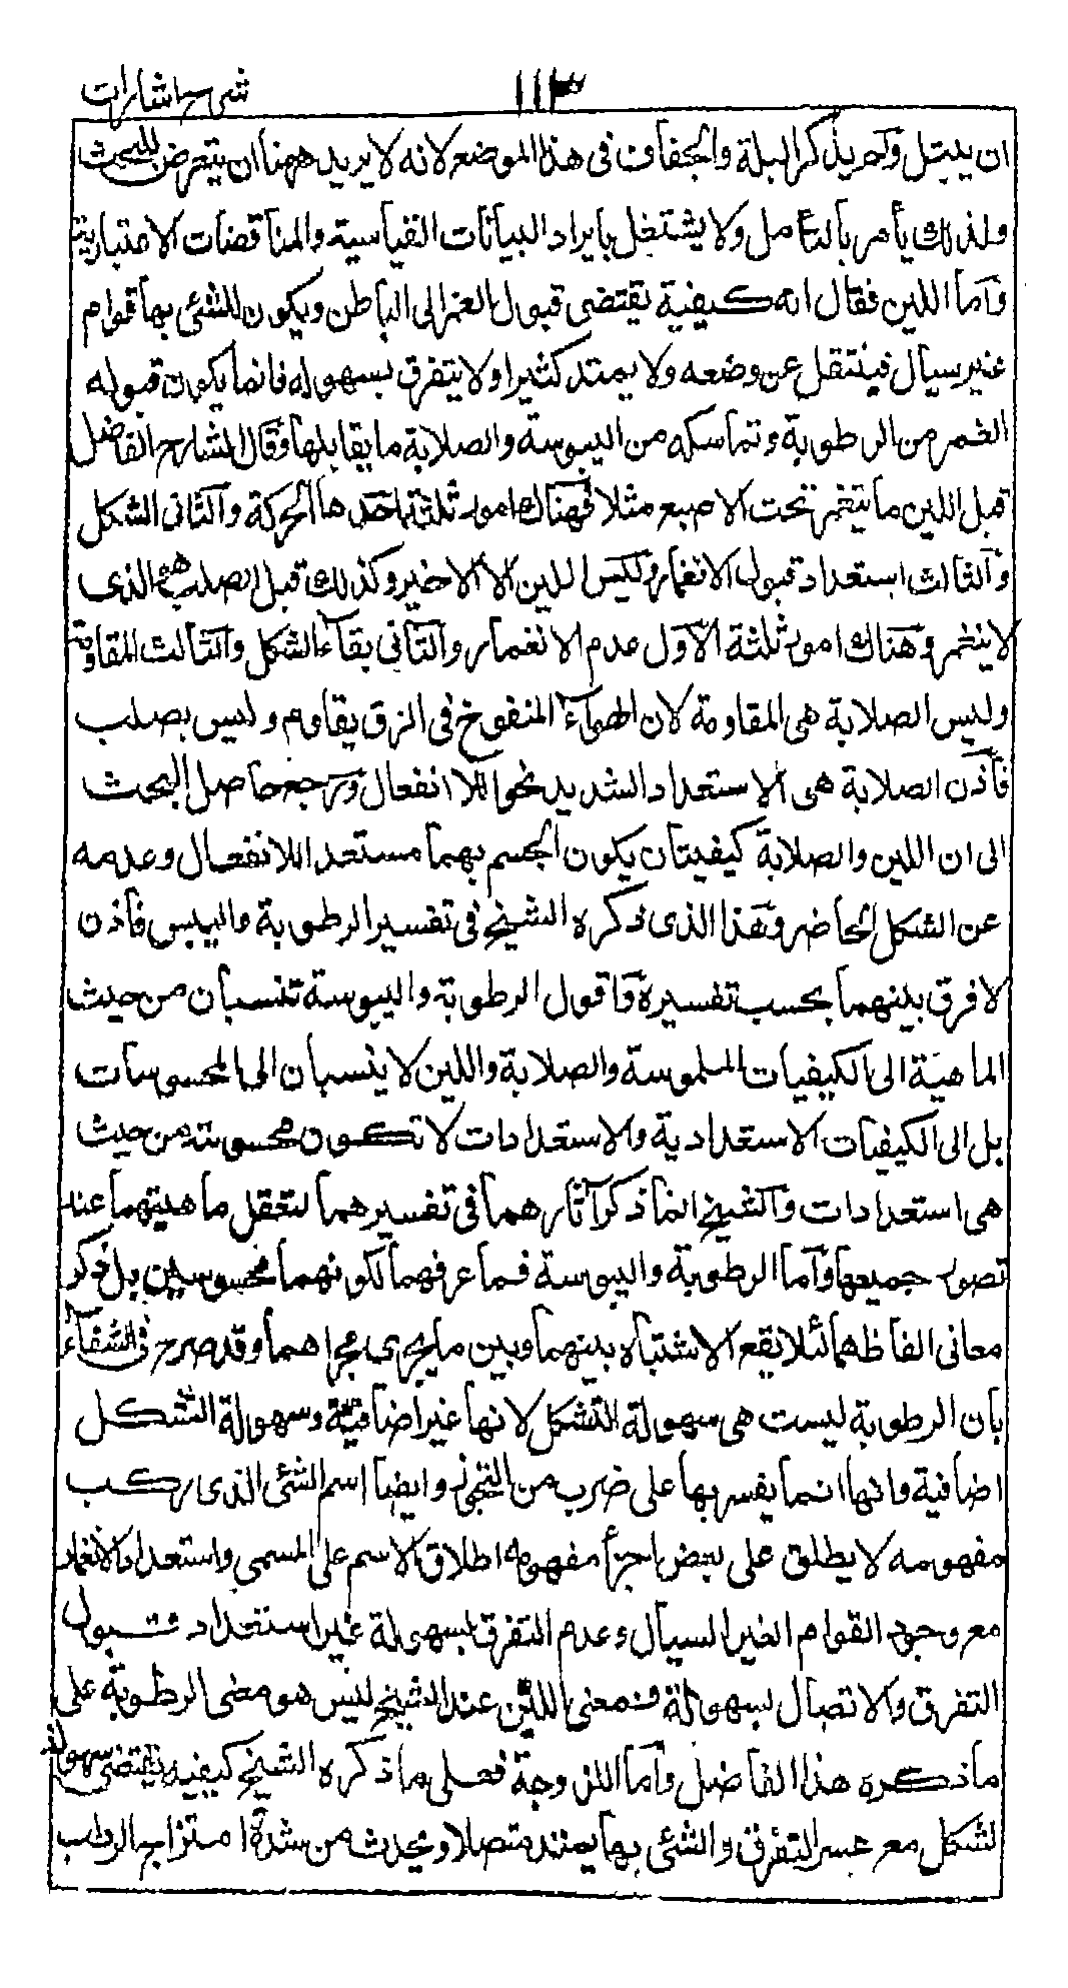 ١١٣ شرح اشارات
ان يبتل ولم يذكر البلة والجفاف فى هذا الموضع لانه لا يريد ههنا ان يتعرض للبحث
ولذلك يأمر بالتأمل ولا يشتغل بايراد البيانات القياسية والمناقضات الاعتبارية
واما اللين فقال انه كيفية يقتضى قبول الغمز الى الباطن ويكون للشئ بها قوام
غير سيال فينتقل عن وضعه ولا يمتد كثيرا ولا يتفرق بسهولة فانما يكون قبوله
الغمز من الرطوبة وتماسكه من اليبوسة والصلابة ما يقابلها وقال الشارح الفاضل
قيل اللين ما ينغمز تحت الاصبع مثلا فهناك امور ثلثة احدها الحركة والثانى الشكل
والثالث استعداد قبول الانغماز وليس اللين الا الاخير وكذلك قيل الصلب هو الذى
لا ينغمز وهناك امور ثلثة الاول عدم الانغماز والثانى بقاء الشكل والثالث المقاومة
وليس الصلابة هى المقاومة لان الهواء المنفوخ فى الزق يقاوم وليس بصلب
فاذن الصلابة هى الاستعداد الشديد نحو اللا انفعال ويرجع حاصل البحث
الى ان اللين والصلابة كيفيتان يكون الجسم بهما مستعدا للانفعال وعدمه
عن الشكل الحاضر وهذا الذى ذكره الشيخ فى تفسير الرطوبة واليبس فاذن
لا فرق بينهما بحسب تفسيره واقول الرطوبة واليبوسة تنسبان من حيث
الماهية الى الكيفيات الملموسة والصلابة واللين لا ينسبان الى المحسوسات
بل الى الكيفيات الاستعدادية والاستعدادات لا تكون محسوسة من حيث
هى استعدادات والشيخ انما ذكر آثارهما فى تفسيرهما لتعقل ماهيتهما عند
تصور جميعها واما الرطوبة واليبوسة فما عرفهما لكونهما محسوسين بل ذكر
معانى الفاظهما لئلا يقع الاشتباه بينهما وبين ما يجرى مجراهما وقد صرح فى الشفاء
بان الرطوبة ليست هى سهولة التشكل لانها غير اضافية وسهولة التشكل
اضافية وانها انما يفسر بها على ضرب من التجوز وايضا اسم الشئ الذى يركب
مفهومه لا يطلق على بعض اجزأ مفهومه اطلاق الاسم على المسمى واستعداد الانغماز
مع وجود القوام الغير السيال وعدم التفرق بسهولة غير استعداد قبول
التفرق والاتصال بسهولة فمعنى اللين عند الشيخ ليس هو معنى الرطوبة على
ما ذكره هذا الفاضل واما اللزوجة فعلى ما ذكره الشيخ كيفية يقتضى سهولة
لشكل مع عسر التفرق والشئ بها يمتد متصلا ويحدث من شدة امتزاج الرطب